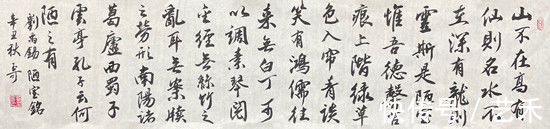 山不在高有
仙則名水不
在深有龍則
靈斯是陋室
惟吾德馨苔
痕上階緑草
色入帘青談
笑有鴻儒往
來無白丁可
以調素琴閱
金經無絲竹之
亂耳無案牘
之勞形南陽諸
葛廬西蜀子
雲亭孔子云何
陋之有
劉禹錫 陋室銘
辛丑秋 奇
快传号/艺禾